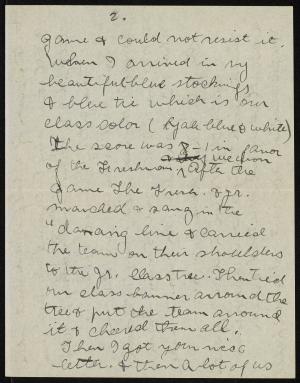 2.
game & could not resist it.
When I arrived in my
beautiful blue stockings
& blue tie which is our
class color (Yale blue & white)
The score was 3-1 in favor
of the Freshmen, we won
After the
game The Fresh. & Jr.
marched & sang in the
"dancing line & carried
the team on their shoulders
to the Jr. class tree. Then tied
our class banner arround the
tree & put the team arround
it & cheered them all.
Then I got your nice
letter. & then a lot of us